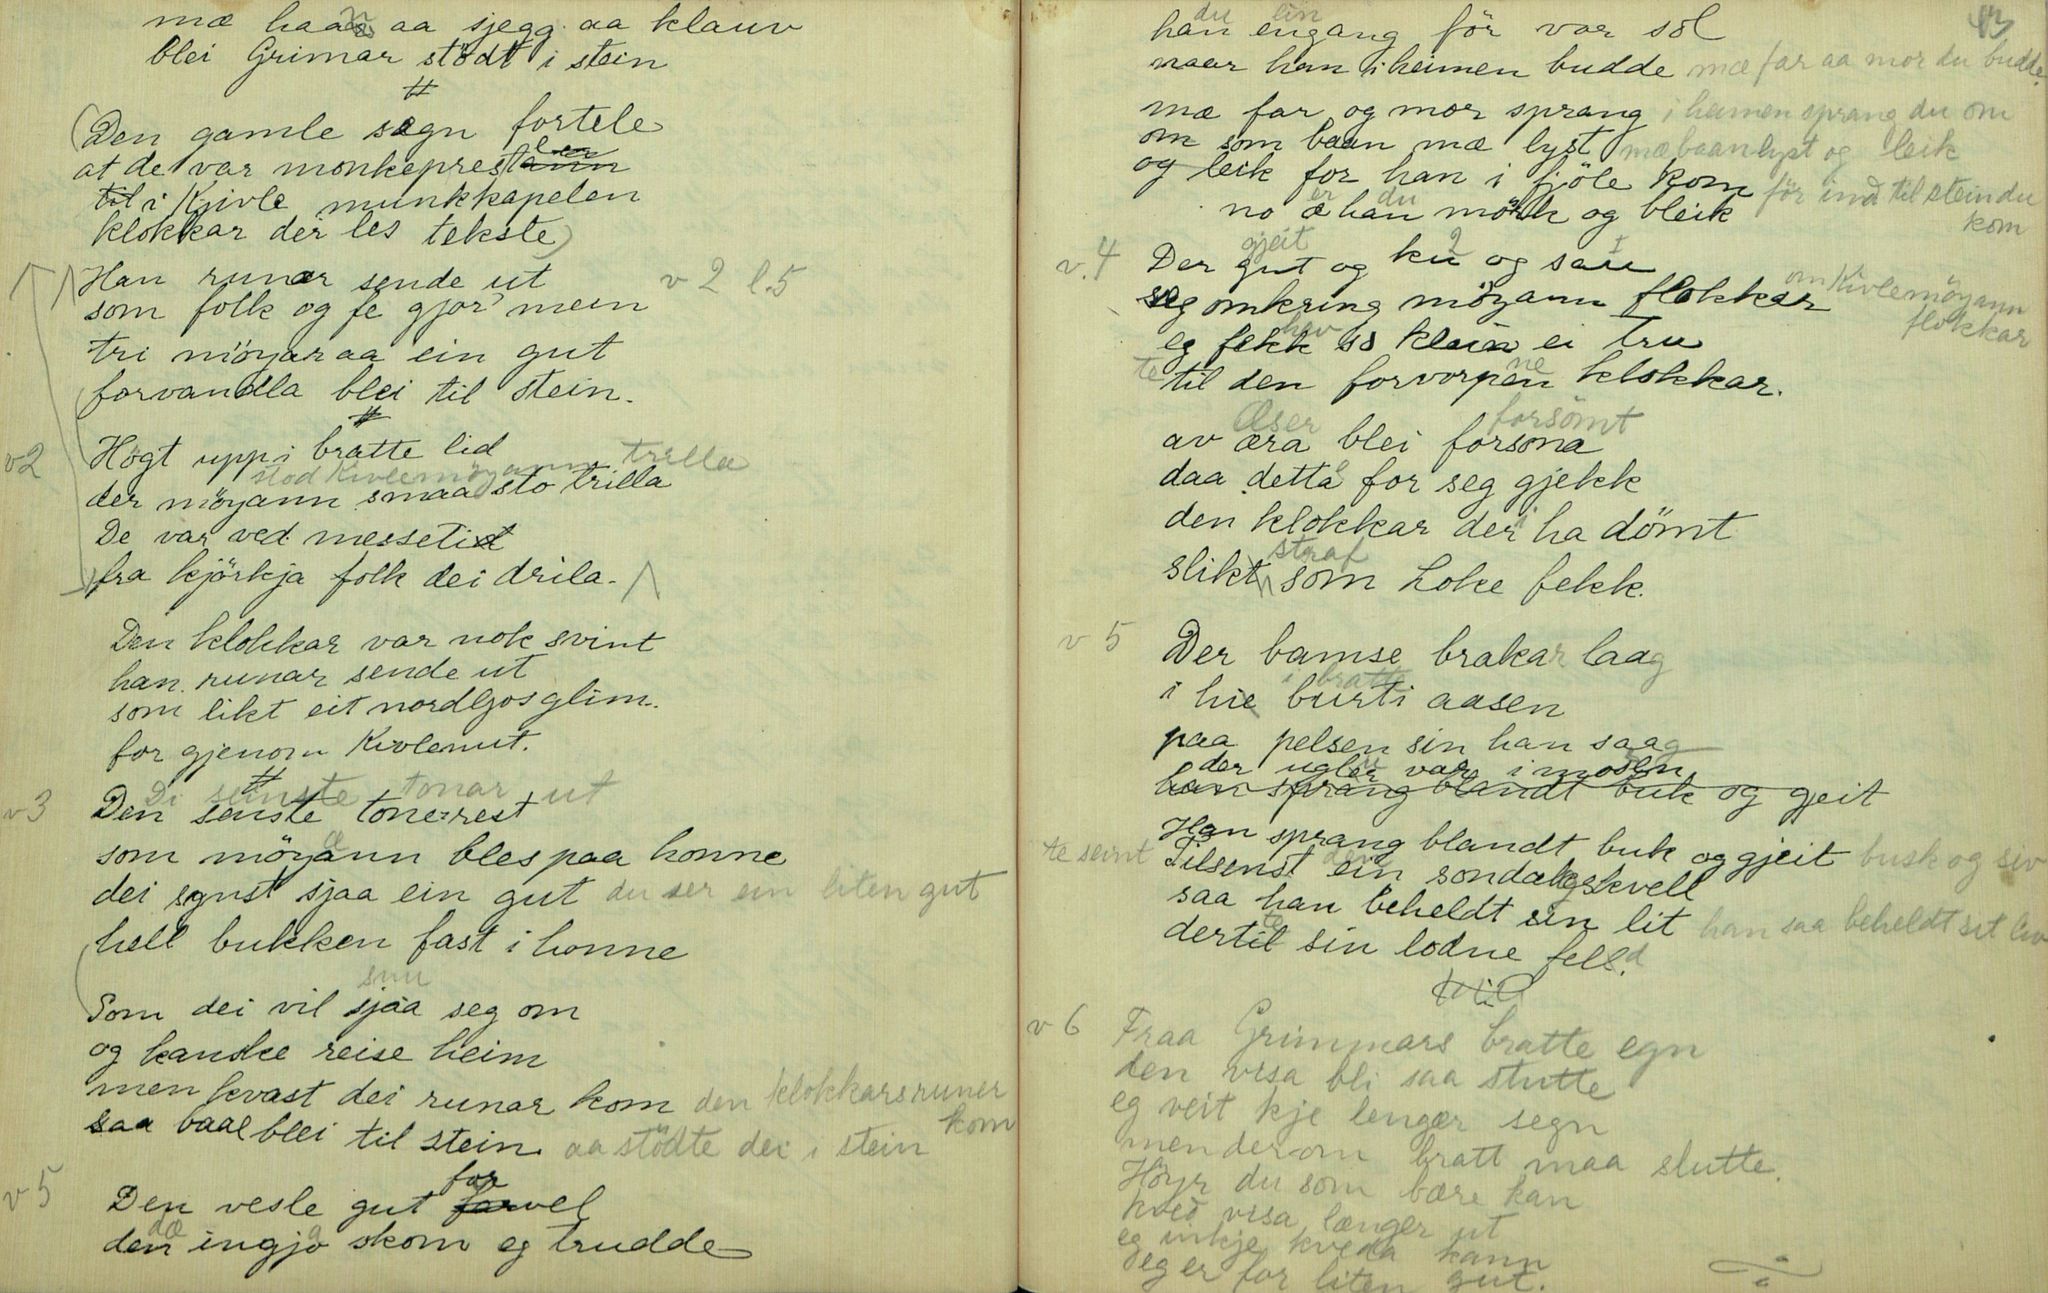 mæ haarn aa sjegg aa klauv
blei Grimar stödt i stein
#
(Den gamle sægn fortele
at de var monkeprest
til i Kjivle munkkapelen
klokkar der les tekste)
Han runar sende ut v 2 l.5
som folk og fe gjor' mein
tri möyar aa ein gut
forvandla blei til stein.
#
v2 Högt upp i bratte lid
stod Kivlemöyann trilla
der möyann smaa sto trilla
De var ved messetid
fra kjörkja folk dei drila.
Den klokkar var nok svint
han runar sende ut
som likt eit nordljosglim.
for gjenom Kivlenut.
#
Di seinste tonar ut
v3 Den senste tonerest
som möyann bles paa honne
dei synst sjaa ein gut du ser ein liten gut
hell bukken fast i honne
snu
Som dei vil sjaa seg om
og kanske reise heim
men kvast dei runar kom den klokkars runer kom
saa baae blei til stein. aa stödte dei i stein
for
v5 Den vesle gut farvel
dæ
den ingja skom eg trudde
43
du lin
han engang för var söl
naar han i heimen budde mæ far aa mor du budde
mæ far og mor sprang i heimen sprang du om
om som baan mæ lyst mæ baanlyst og leik
og leik for han i fjöle kom för ind til stein du kom
er du
no æ han mörk og bleik
gjeit 2 1
v.4 Der gut og ku og sau
seg omkring möyann flokkar om Kivlemöyann flokkar
hev
eg fekk so klein ei tru
te ne
til den forvorpen klokkar.
Æser forsömt
av æra blei forsona
daa detta for seg gjekk
den klokkar der i ha dömt
straf
slikt som Loke fekk.
v 5 Der bamse brakar laag
i bratte
i hie burti aasen
paa pelsen sin han saag
der ugler var i mosen
han sprang blandt buk og gjeit
Han sprang blandt buk og gjeit busk og siv
te seint den
Tilsenst ein sondakskvell
saa han beheldt sin lit han saa beheldt sit liv
te
dertil sin lodne felld.
v 6 Fraa Grimmars bratte egn
den visa bli saa stutte
eg veit kje lenger segn
men derom bratt maa slutte.
Höyr du som bære kan
kved visa længer ut
eg inkje kveda kann
eg er for liten gut.